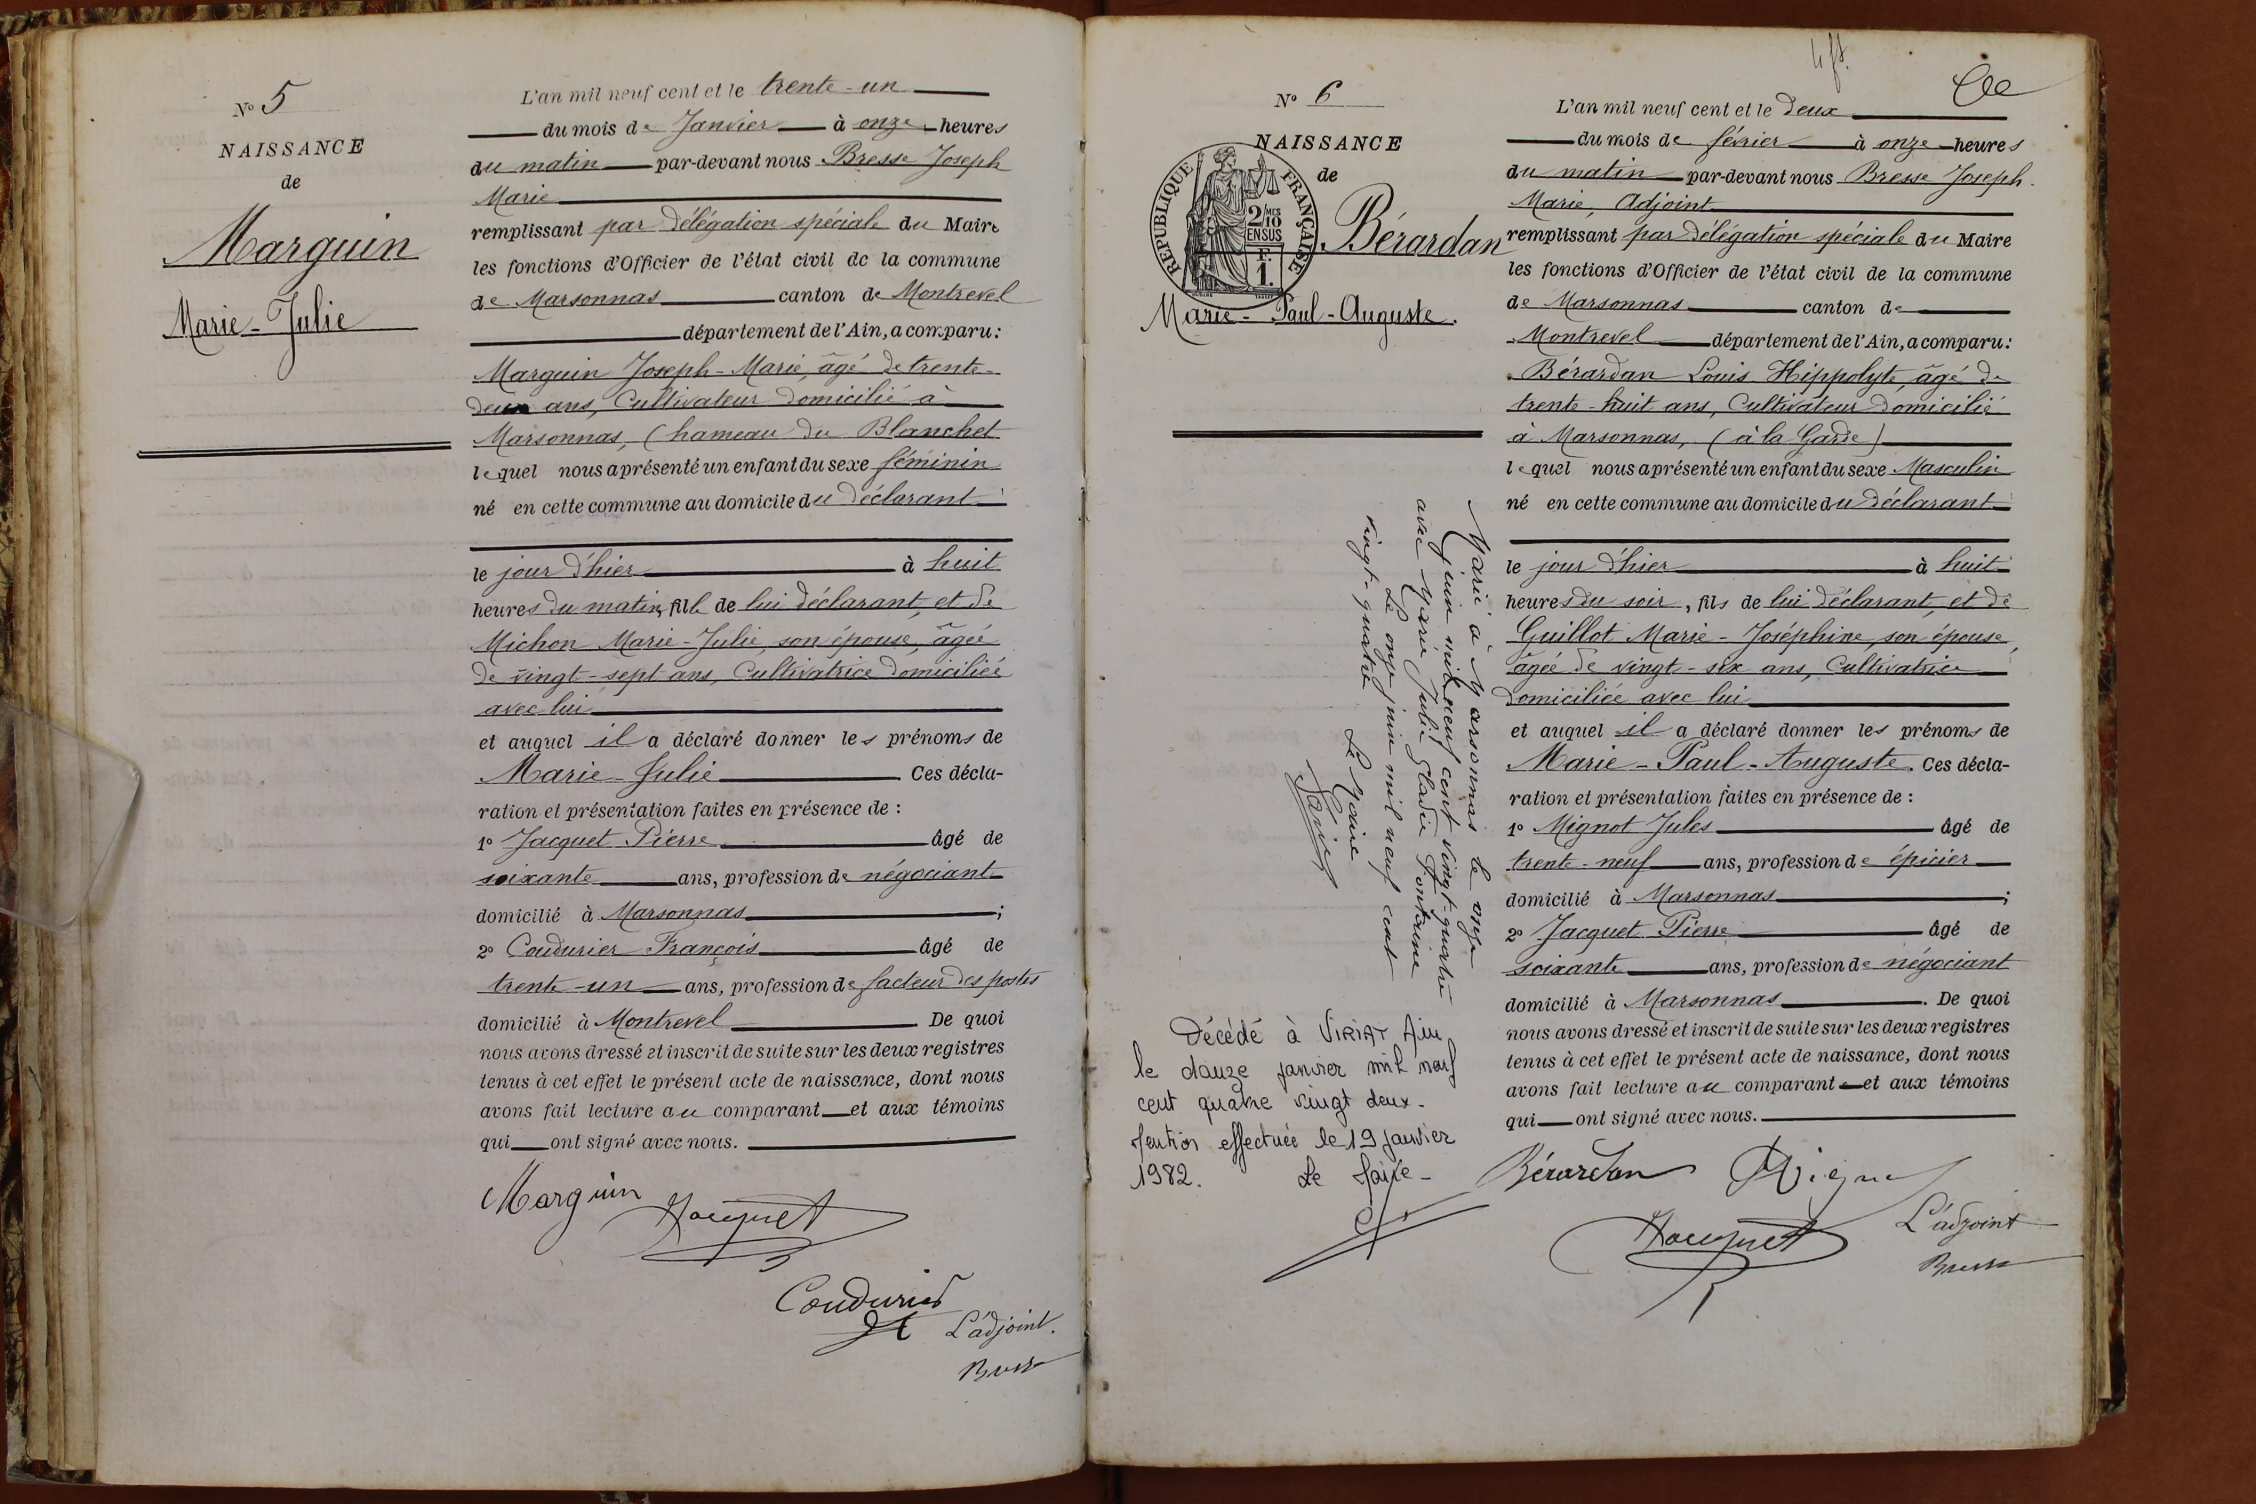 N° 5
NAISSANCE
de
Marguin
Marie-Julie
L'an mil neuf cent et le trente-un
du mois de Janvier à onze heures
du matin par-devant nous Bresse Joseph
Marie
remplissant par délégation spéciale du Maire
les fonctions d'Officier de l'état civil de la commune
de Marsonnas canton de Montrevel
département de l'Ain, a comparu:
Marguin Joseph-Marie, âgé de trente-
deux ans, Cultivateur domicilié à
Marsonnas, (hameau du Blanchet
lequel nous a présenté un enfant du sexe féminin
né en cette commune au domicile du déclarant
le jour d'hier à huit
heures du matin, fille de lui déclarant, et de
Michon Marie-Julie, son épouse, âgée
de vingt-sept ans, Cultivatrice domiciliée
avec lui
et auquel il a déclaré donner les prénoms de
Marie-Julie Ces décla-
ration et présentation faites en présence de :
1° Jacquet Pierre âgé de
soixante ans, profession de négociant
domicilié à Marsonnas ;
2° Coudurier François âgé de
trente-un ans, profession de facteur des postes
domicilié à Montrevel De quoi
nous avons dressé et inscrit de suite sur les deux registres
tenus à cet effet le présent acte de naissance, dont nous
avons fait lecture au comparant et aux témoins
qui ont signé avec nous.
Marguin Jacquet
Coudurier
L'adjoint.
Bresse
N° 6
NAISSANCE
de
REPUBLIQUE FRANÇAISE
2/MES
10
EN SUS
F.
1.
Bérardan
Marie-Paul-Auguste.
Marié à Marsonnas le onze
juin mil neuf cent vingt-quatre
avec Marie Julie Eladie Fontaine
Le onze juin mil neuf cent
vingt-quatre Le Maire
Décédé à VIRIAT Ain
le douze janvier mil neuf
cent quatre vingt deux.
Mention effectuée le 19 janvier
1982. Le Maire-
L'an mil neuf cent et le Deux
du mois de février à onze heures
du matin par-devant nous Bresse Joseph.
Marie, Adjoint
remplissant par délégation spéciale du Maire
les fonctions d'Officier de l'état civil de la commune
de Marsonnas canton de
Montrevel département de l'Ain, a comparu:
Bérardan Louis Hippolyte, âgé de
trente-huit ans, Cultivateur domicilié
à Marsonnas, (à la Garde)
lequel nous a présenté un enfant du sexe Masculin
né en cette commune au domicile du déclarant
le jour d'hier à huit
heures du soir, fils de lui déclarant, et de
Guillot Marie-Joséphine, son épouse,
âgée de vingt-six ans, Cultivatrice
domiciliée avec lui
et auquel il a déclaré donner les prénoms de
Marie-Paul-Auguste. Ces décla-
ration et présentation faites en présence de :
1° Mignot Jules âgé de
trente-neuf ans, profession de épicier
domicilié à Marsonnas ;
2° Jacquet Pierre âgé de
soixante ans, profession de négociant
domicilié à Marsonnas . De quoi
nous avons dressé et inscrit de suite sur les deux registres
tenus à cet effet le présent acte de naissance, dont nous
avons fait lecture au comparant et aux témoins
qui ont signé avec nous.
Bérardan Mignot
Jacquet L'adjoint
Bresse